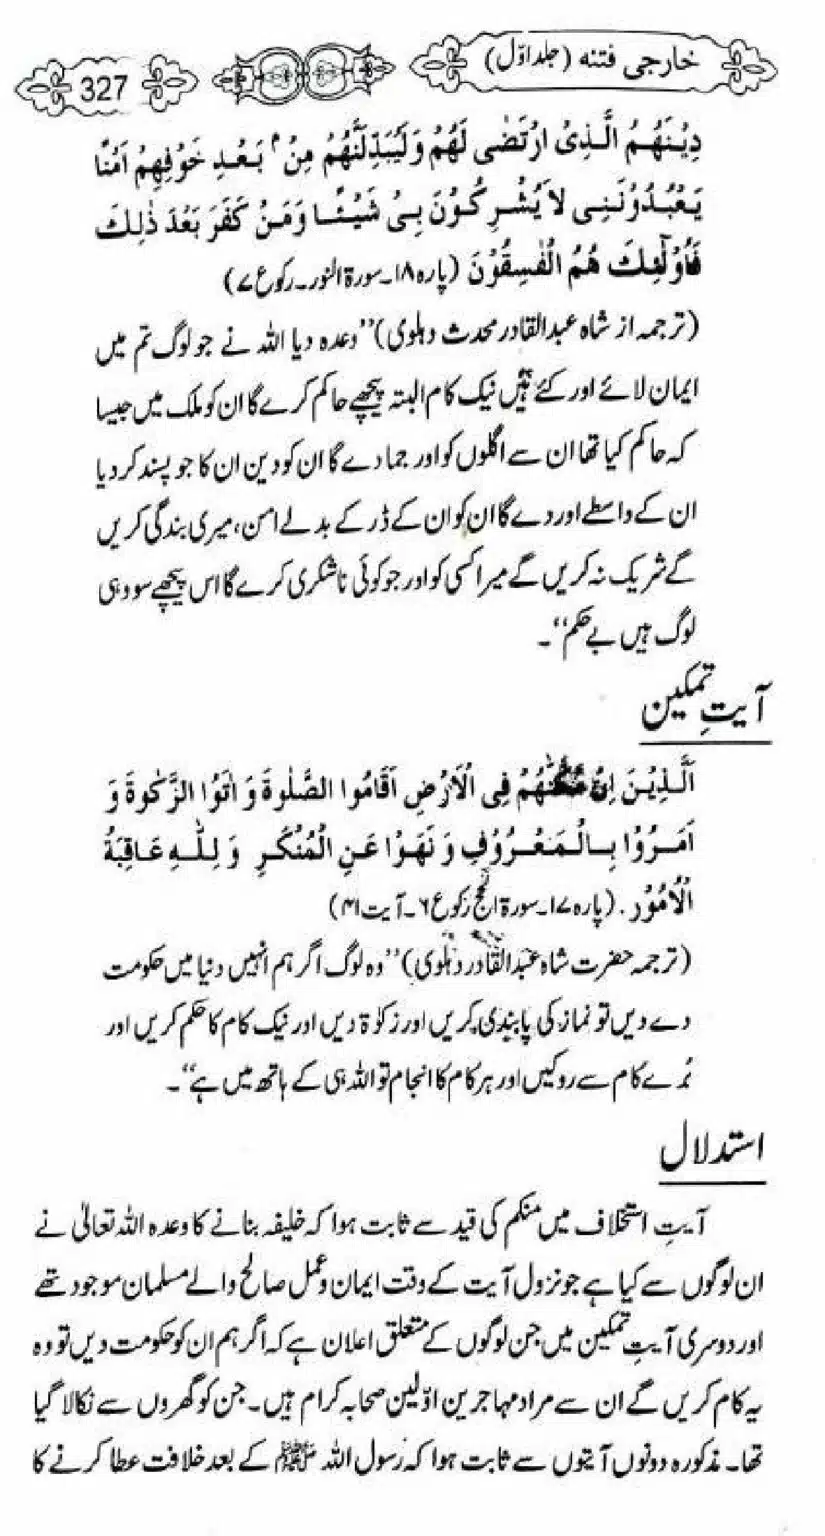 خارجی فتنہ (جلد اوّل)
327
دِیْنَهُمُ الَّذِی ارْتَضٰی لَهُمْ وَلَیُبَدِّلَنَّهُمْ مِنْۢ بَعْدِ خَوْفِهِمْ اَمْنًا
یَعْبُدُوْنَنِیْ لَا یُشْرِکُوْنَ بِیْ شَیْئًا وَمَنْ کَفَرَ بَعْدَ ذٰلِكَ
فَاُولٰٓئِكَ هُمُ الْفٰسِقُوْنَ (پارہ ۱۸۔ سورۃ النور۔ رکوع ۷)
(ترجمہ از شاہ عبدالقادر محدث دہلوی) ’’وعدہ دیا اللہ نے جو لوگ تم میں
ایمان لائے اور کئے ہیں نیک کام البتہ پیچھے حاکم کرے گا ان کو ملک میں جیسا
کہ حاکم کیا تھا ان سے اگلوں کو اور جما دے گا ان کو دین ان کا جو پسند کر دیا
ان کے واسطے اور دے گا ان کو ان کے ڈر کے بدلے امن، میری بندگی کریں
گے شریک نہ کریں گے میرا کسی کو اور جو کوئی ناشکری کرے گا اس پیچھے سو وہی
لوگ ہیں بے حکم‘‘۔
آیتِ تمکین
اَلَّذِیْنَ اِنْ مَّکَّنّٰهُمْ فِی الْاَرْضِ اَقَامُوا الصَّلٰوةَ وَ اٰتَوُا الزَّکٰوةَ وَ
اَمَرُوْا بِالْمَعْرُوْفِ وَ نَهَوْا عَنِ الْمُنْکَرِ وَ لِلّٰهِ عَاقِبَةُ
الْاُمُوْرِ. (پارہ ۱۷۔ سورۃ الحج رکوع ۶۔ آیت ۴۱)
(ترجمہ حضرت شاہ عبدالقادر دہلوی) ’’وہ لوگ اگر ہم انہیں دنیا میں حکومت
دے دیں تو نماز کی پابندی کریں اور زکوٰۃ دیں اور نیک کام کا حکم کریں اور
بُرے کام سے روکیں اور ہر کام کا انجام تو اللہ ہی کے ہاتھ میں ہے‘‘۔
استدلال
آیتِ استخلاف میں منکم کی قید سے ثابت ہوا کہ خلیفہ بنانے کا وعدہ اللہ تعالیٰ نے
ان لوگوں سے کیا ہے جو نزول آیت کے وقت ایمان و عمل صالح والے مسلمان موجود تھے
اور دوسری آیتِ تمکین میں جن لوگوں کے متعلق اعلان ہے کہ اگر ہم ان کو حکومت دیں تو وہ
یہ کام کریں گے ان سے مراد مہاجرین اوّلین صحابہ کرام ہیں۔ جن کو گھروں سے نکالا گیا
تھا۔ مذکورہ دونوں آیتوں سے ثابت ہوا کہ رسول اللہ ﷺ کے بعد خلافت عطا کرنے کا